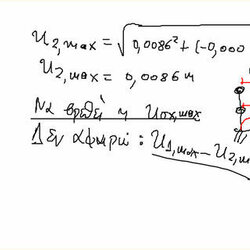 U2,max = √0,0086² + (-0,000
U2,max = 0,0086 м
Να βρεθεί η Uσχ,max
Δεν αφαιρώ: U1,max - U2,m